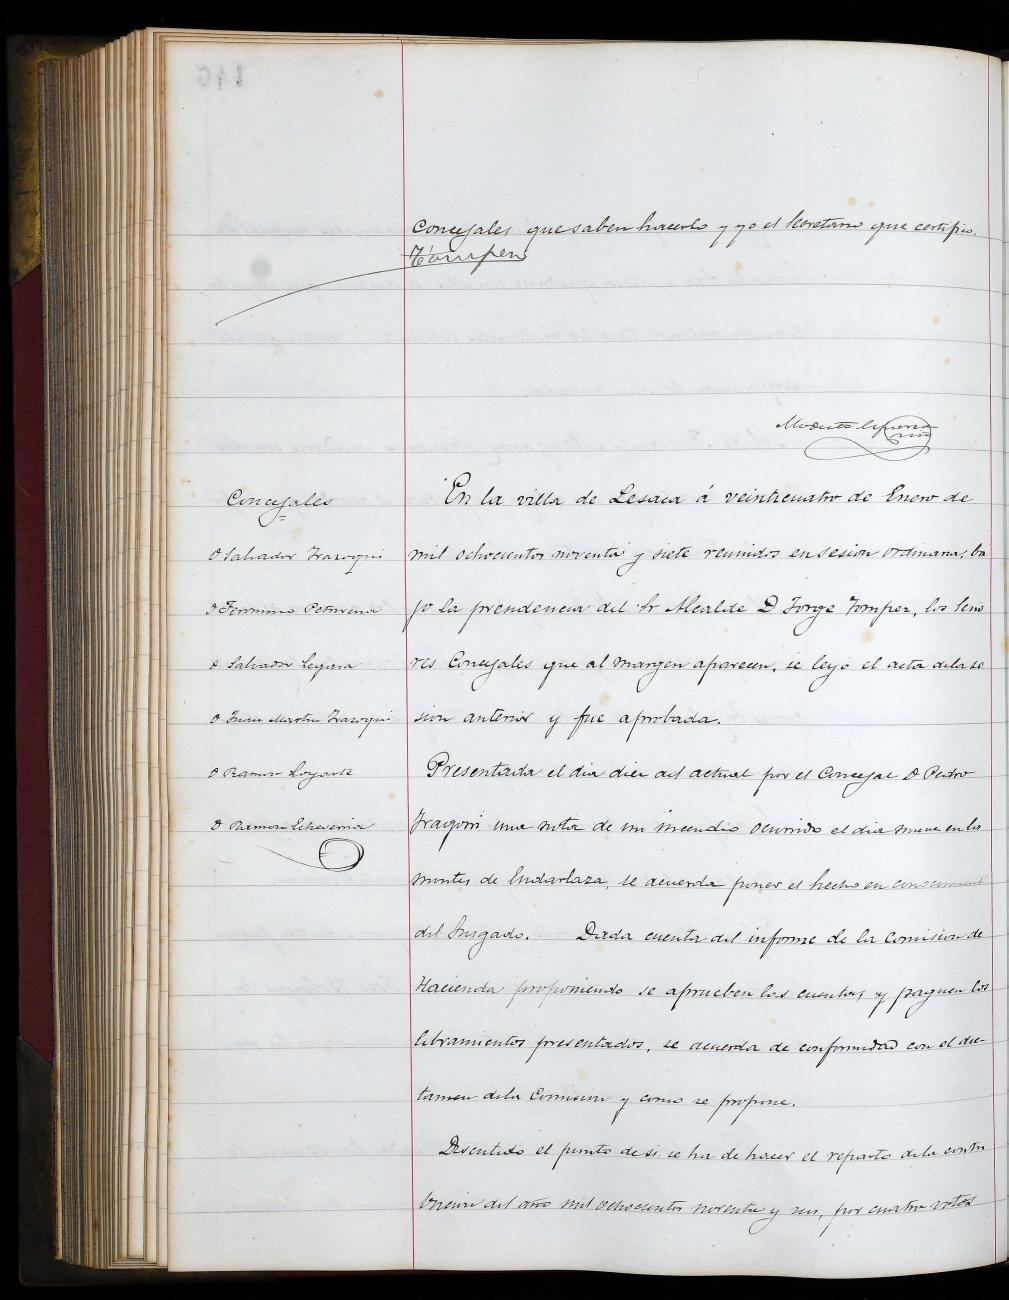 Concejales que saben hacerlo y yo el Secretario que certifico.
Tompes
Modesto
En la villa de Lesaca á veinticuatro de Enero de
mil ochocientos noventa y siete reunidos en sesion ordinaria, ba
jo la presidencia del Sr Alcalde D Jorge Tompes, los Seño
res Concejales que al margen aparecen, se leyó el acta dela se
sion anterior y fue aprobada.
Concejales
D Salvador Irazoqui
D Feromino Petrirena
D Salvador Legasa
D Juan Martin Irazoqui
D Ramon Loyarte
D Ramon Echeverria
Presentada el dia diez del actual por el Concejal D Pedro
una nota de un incendio ocurrido el dia nueve en los
montes de Endarlaza, se acuerda poner el hecho en conocimient
del Juzgado. Dada cuenta del informe de la Comision de
Hacienda proponiendo se aprueben las cuentas y paguen los
libramientos presentados, se acuerda de conformidad con el dic-
tamen dela Comision y como se propone.
Discutido el punto de si se ha de hacer el reparto dela contri
bucion del año mil ochocientos noventa y seis, por cuatro votos